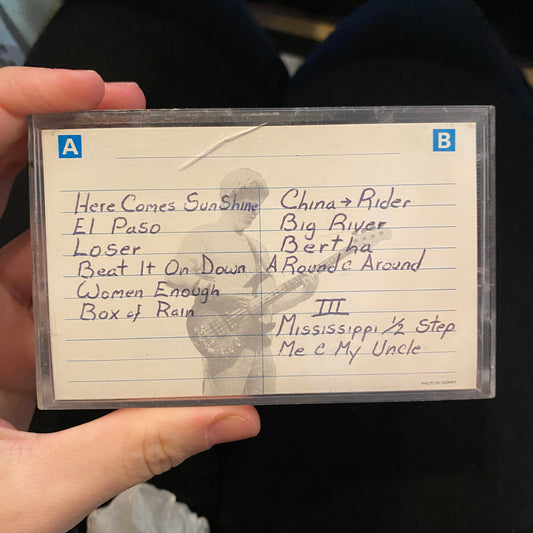 A
B
Here Comes Sunshine
El Paso
Loser
Beat It On Down
Women Enough
Box of Rain
China → Rider
Big River
Bertha
A Round c Around
III
Mississippi 1/2 Step
Me c My Uncle